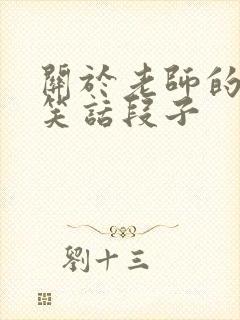 關於老師的
笑話段子
劉十三